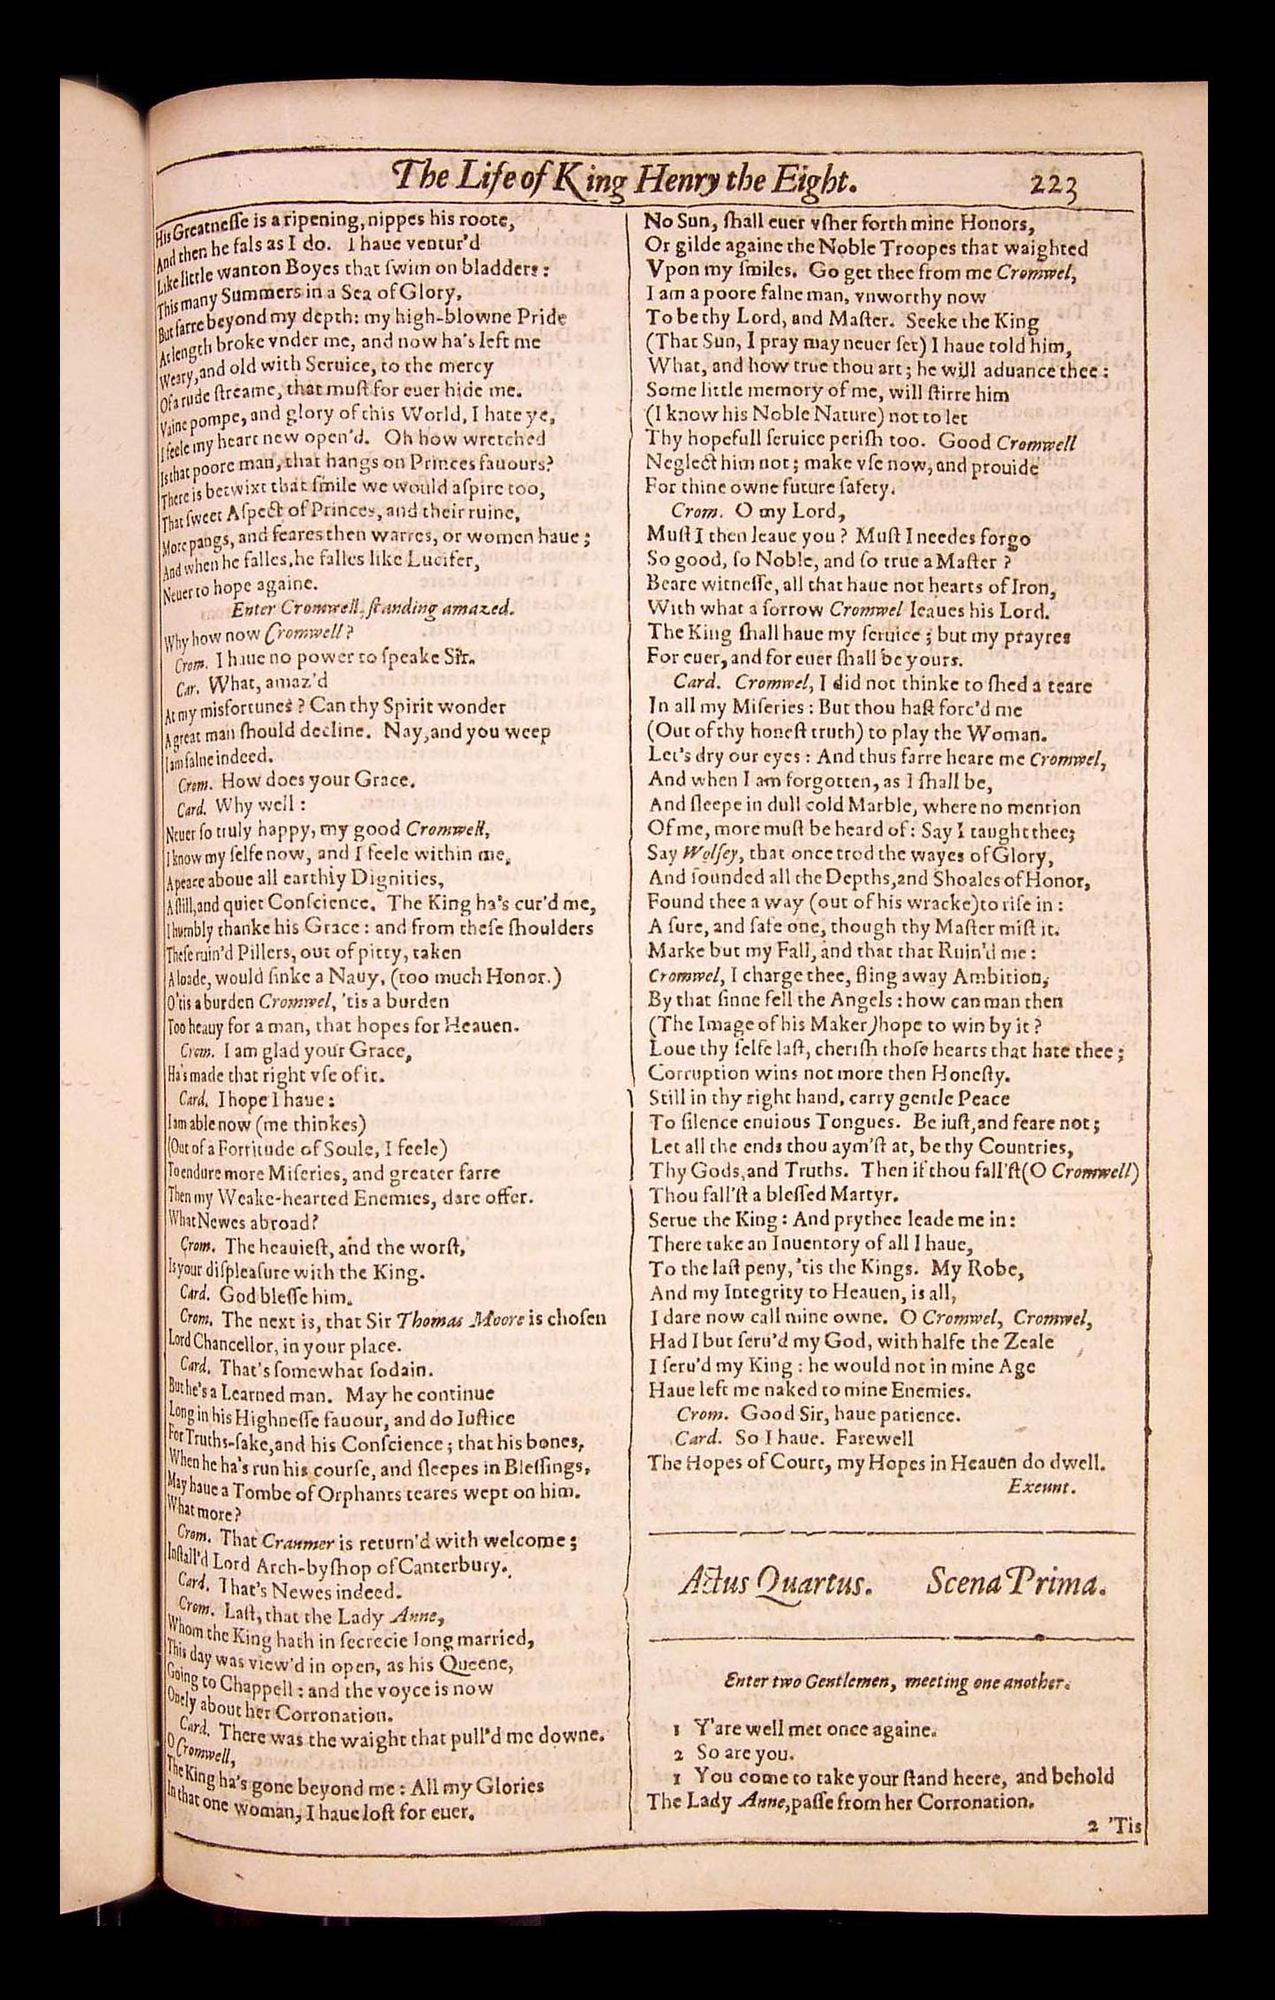 The Life of King Henry the Eight. 223
His Greatnesse is a ripening, nippes his roote,
And then he fals as I do. I haue ventur'd
Like little wanton Boyes that swim on bladders:
This many Summers in a Sea of Glory,
But farre beyond my depth: my high-blowne Pride
At length broke vnder me, and now ha's left me
Weary, and old with Seruice, to the mercy
Of a rude streame, that must for euer hide me.
Vaine pompe, and glory of this World, I hate ye,
I feele my heart new open'd. Oh how wretched
Is that poore man, that hangs on Princes fauours?
There is betwixt that smile we would aspire too,
That sweet Aspect of Princes, and their ruine,
More pangs, and feares then warres, or women haue;
And when he falles, he falles like Lucifer,
Neuer to hope againe.
Enter Cromwell, standing amazed.
Why how now Cromwell?
Crom. I haue no power to speake Sir.
Car. What, amaz'd
At my misfortunes? Can thy Spirit wonder
A great man should decline. Nay, and you weep
I am falne indeed.
Crom. How does your Grace.
Card. Why well:
Neuer so truly happy, my good Cromwell,
I know my selfe now, and I feele within me,
A peace aboue all earthly Dignities,
A still, and quiet Conscience. The King ha's cur'd me,
I humbly thanke his Grace: and from these shoulders
These ruin'd Pillers, out of pitty, taken
A loade, would sinke a Nauy, (too much Honor.)
O 'tis a burden Cromwel, 'tis a burden
Too heauy for a man, that hopes for Heauen.
Crom. I am glad your Grace,
Ha's made that right vse of it.
Card. I hope I haue:
I am able now (me thinkes)
(Out of a Fortitude of Soule, I feele)
To endure more Miseries, and greater farre
Then my Weake-hearted Enemies, dare offer.
What Newes abroad?
Crom. The heauiest, and the worst,
Is your displeasure with the King.
Card. God blesse him.
Crom. The next is, that Sir Thomas Moore is chosen
Lord Chancellor, in your place.
Card. That's somewhat sodain.
But he's a Learned man. May he continue
Long in his Highnesse fauour, and do Iustice
For Truths-sake, and his Conscience; that his bones,
When he ha's run his course, and sleepes in Blessings,
May haue a Tombe of Orphants teares wept on him.
What more?
Crom. That Cranmer is return'd with welcome;
Install'd Lord Arch-byshop of Canterbury.
Card. That's Newes indeed.
Crom. Last, that the Lady Anne,
Whom the King hath in secrecie long married,
This day was view'd in open, as his Queene,
Going to Chappell: and the voyce is now
Onely about her Corronation.
Card. There was the waight that pull'd me downe.
O Cromwell,
The King ha's gone beyond me: All my Glories
In that one woman, I haue lost for euer.
No Sun, shall euer vsher forth mine Honors,
Or gilde againe the Noble Troopes that waighted
Vpon my smiles. Go get thee from me Cromwel,
I am a poore falne man, vnworthy now
To be thy Lord, and Master. Seeke the King
(That Sun, I pray may neuer set) I haue told him,
What, and how true thou art; he will aduance thee:
Some little memory of me, will stirre him
(I know his Noble Nature) not to let
Thy hopefull seruice perish too. Good Cromwell
Neglect him not; make vse now, and prouide
For thine owne future safety.
Crom. O my Lord,
Must I then leaue you? Must I needes forgo
So good, so Noble, and so true a Master?
Beare witnesse, all that haue not hearts of Iron,
With what a sorrow Cromwel leaues his Lord.
The King shall haue my seruice; but my prayres
For euer, and for euer shall be yours.
Card. Cromwel, I did not thinke to shed a teare
In all my Miseries: But thou hast forc'd me
(Out of thy honest truth) to play the Woman.
Let's dry our eyes: And thus farre heare me Cromwel,
And when I am forgotten, as I shall be,
And sleepe in dull cold Marble, where no mention
Of me, more must be heard of: Say I taught thee;
Say Wolsey, that once trod the wayes of Glory,
And sounded all the Depths, and Shoales of Honor,
Found thee a way (out of his wracke) to rise in:
A sure, and safe one, though thy Master mist it.
Marke but my Fall, and that that Ruin'd me:
Cromwel, I charge thee, fling away Ambition,
By that sinne fell the Angels: how can man then
(The Image of his Maker) hope to win by it?
Loue thy selfe last, cherish those hearts that hate thee;
Corruption wins not more then Honesty.
Still in thy right hand, carry gentle Peace
To silence enuious Tongues. Be iust, and feare not;
Let all the ends thou aym'st at, be thy Countries,
Thy Gods, and Truths. Then if thou fall'st (O Cromwell)
Thou fall'st a blessed Martyr.
Serue the King: And prythee leade me in:
There take an Inuentory of all I haue,
To the last peny, 'tis the Kings. My Robe,
And my Integrity to Heauen, is all,
I dare now call mine owne. O Cromwel, Cromwel,
Had I but seru'd my God, with halfe the Zeale
I seru'd my King: he would not in mine Age
Haue left me naked to mine Enemies.
Crom. Good Sir, haue patience.
Card. So I haue. Farewell
The Hopes of Court, my Hopes in Heauen do dwell.
Exeunt.
Actus Quartus. Scena Prima.
Enter two Gentlemen, meeting one another.
1 Y'are well met once againe.
2 So are you.
1 You come to take your stand heere, and behold
The Lady Anne, passe from her Corronation.
2 'Tis